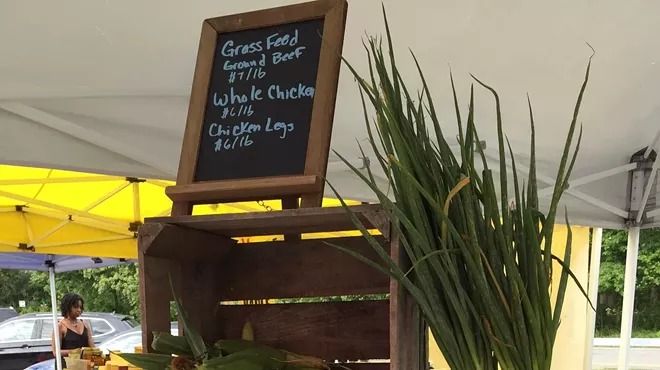 Grass Feed
Ground Beef
$7/lb
Whole Chicken
$6/lb
Chicken Legs
$6/lb